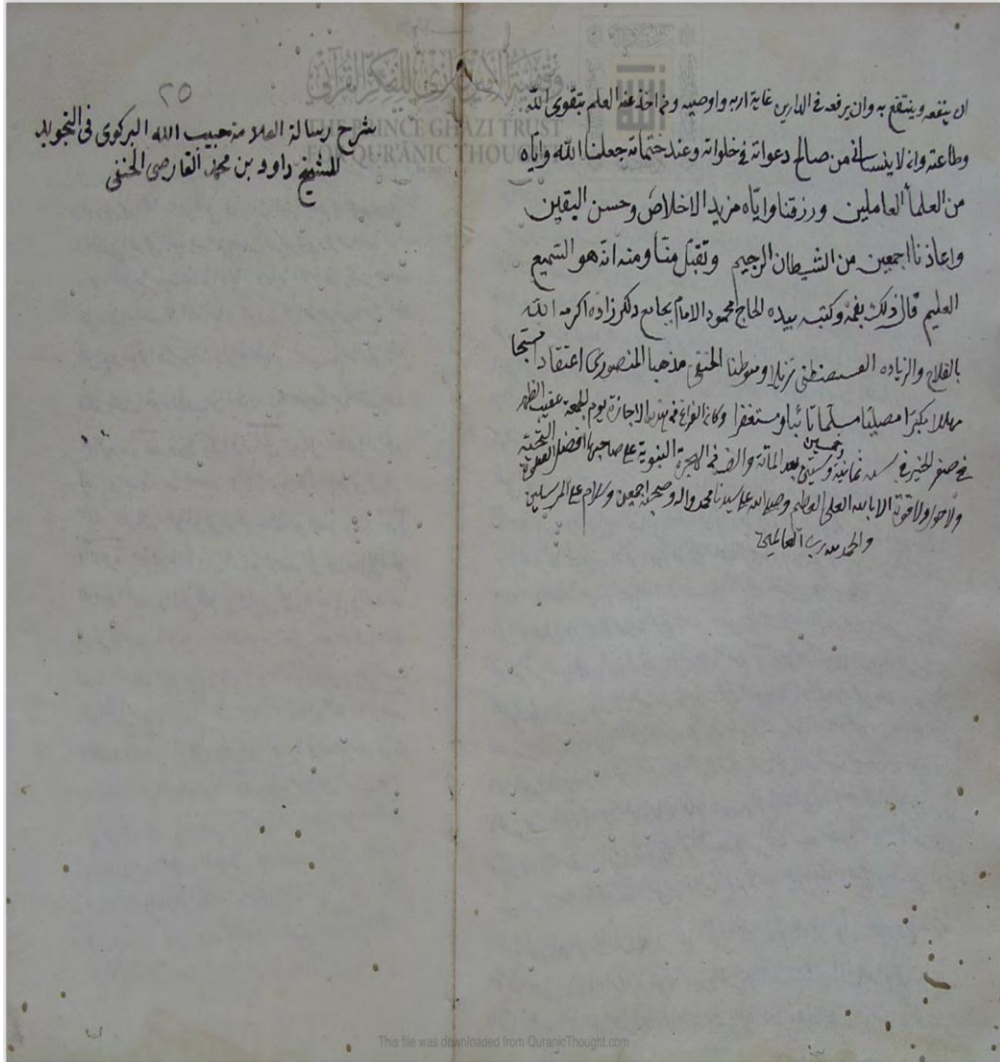 ان ينفعه وينتفع به وان يرفعه في الدارين غاية اربه واوصيه ومن اخذ عنه العلم بتقوى الله
وطاعته وان لا ينساني من صالح دعواته في خلواته وعند ختماته جعلنا الله واياه
من العلمأ العاملين ورزقنا واياه مزيد الاخلاص وحسن اليقين
واعاذنا اجمعين من الشيطان الرجيم وتقبل منا ومنه انه هو السميع
العليم قال ذلك بفمه وكتبه بيده الحاج محمود الامام بجامع زاده اكرمه الله
بالفلاح والزياده نزيلا وموطنا الحنفي مذهبا المنصوري اعتقادا مسبحا
مهللا مكبرا مصليا مسلما تائبا ومستغفرا وكان الفراغ في هذه الاجازة يوم الجمعة عقيب الظهر
في صفر الخير في سنة ثمانية وخمسين بعد المائة والف من الهجرة النبوية على صاحبها افضل التحية
ولا حول ولا قوة الا بالله العلي العظيم وصلى الله على سيدنا محمد واله وصحبه اجمعين وسلام على المرسلين
والحمد لله رب العالمين
٢٥
شرح رسالة العلامة حبيب الله البركوى فى التجويد
للشيخ داود بن محمد القارصى الحنفى
مؤسسة الأمير غازي للفكر القرآني
THE PRINCE GHAZI TRUST
FOR QUR'ĀNIC THOUGHT
This file was downloaded from QuranicThought.com